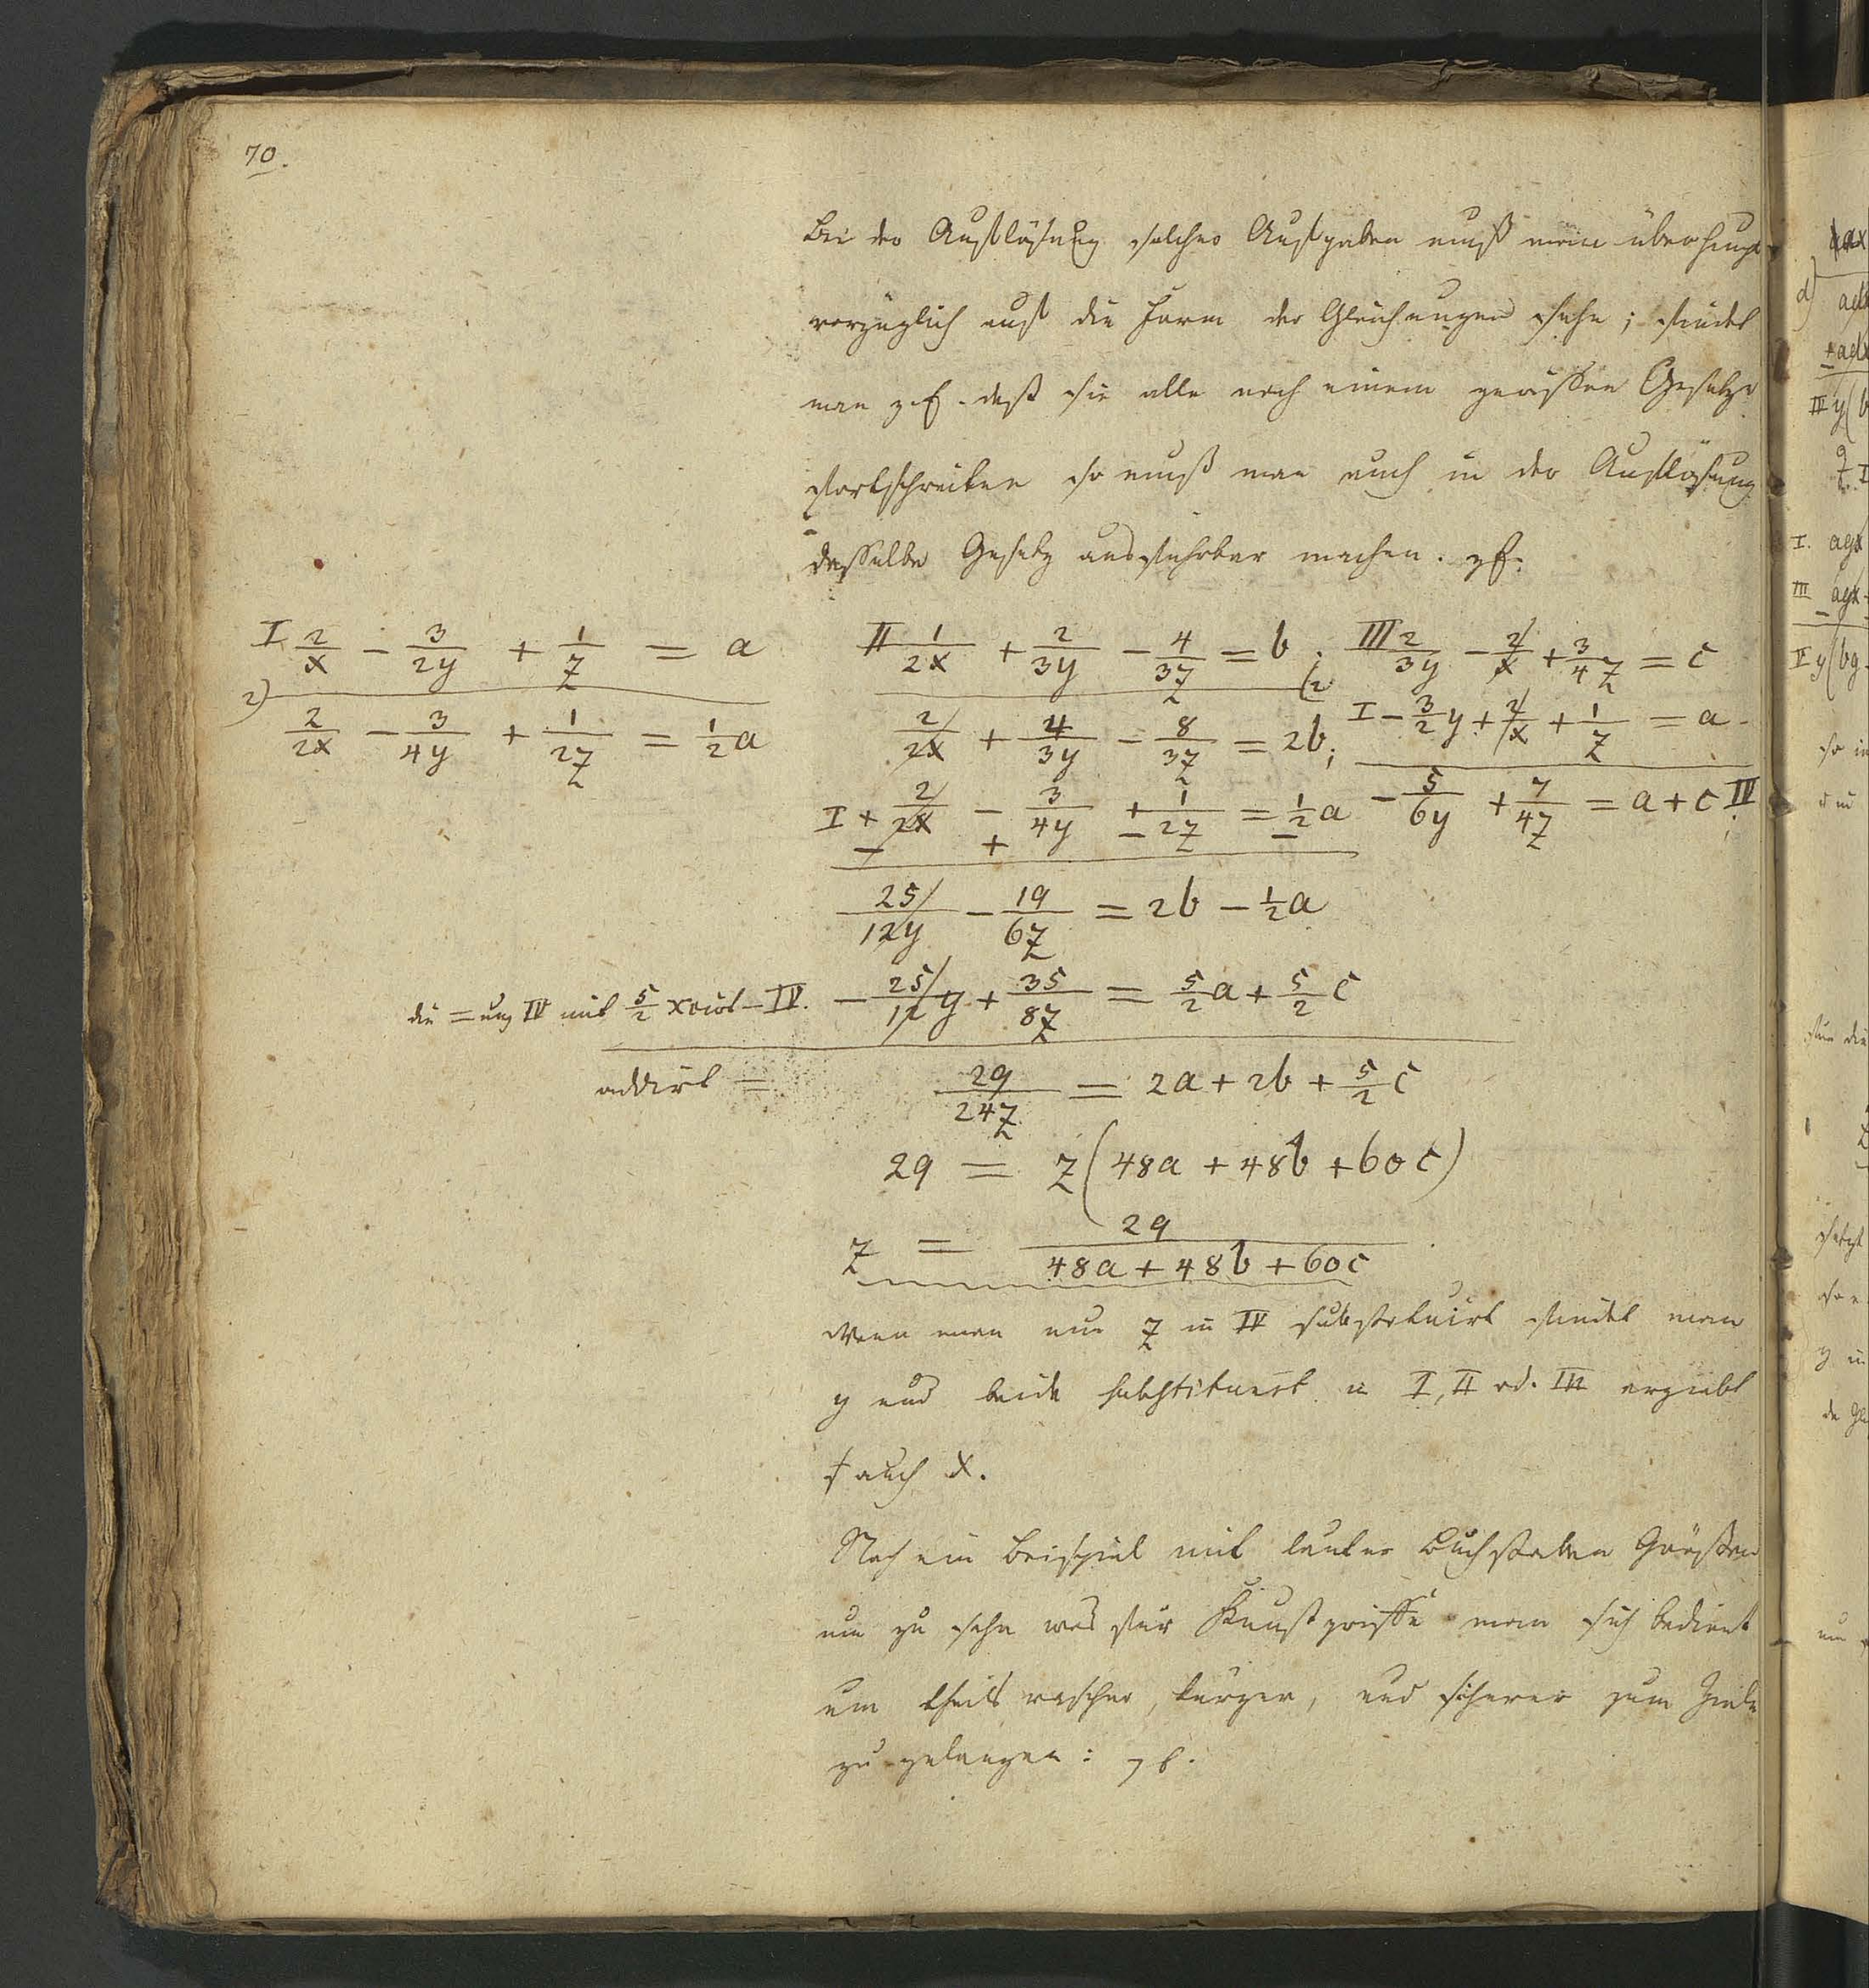 70.
Bei der Auflösung solcher Aufgaben muß man überhaupt
vorzüglich auf die Form der Gleichungen sehn; findet
man z.B. daß sie alle nach einem gewissen Gesetze
fortschreiten so muß man auch in der Auflösung
dasselbe Gesetz ausführbar machen. zB.
I 2/x − 3/2y + 1/z = a
II 1/2x + 2/3y − 4/3z = b; III 2/3y − 2/x + 3/4z = c
2) 2/2x − 3/4y + 1/2z = 1/2 a
(2 2/2x + 4/3y − 8/3z = 2b; I − 3/2 y + 2/x + 1/z = a
I + 2/2x − 3/4y + 1/2z = 1/2 a − 5/6y + 7/4z = a + c IV
− + − −
25/12y − 19/6z = 2b − 1/2 a
die = ung IV mit 5/2 xcirt = IV. − 25/12 y + 35/8z = 5/2 a + 5/2 c
addirt = 29/24z = 2a + 2b + 5/2 c
29 = z(48a + 48b + 60c)
z = 29/48a + 48b + 60c
Wenn man nun z in IV substituirt findet man
y und beide substituirt in I, II od. III ergiebt
auch x.
Noch ein Beispiel mit lauter Buchstaben Größen
um zu sehn was für Kunstgriffe man sich bedient
um theils rascher, kürzer, und sicherer zum Ziele
zu gelangen: zB.